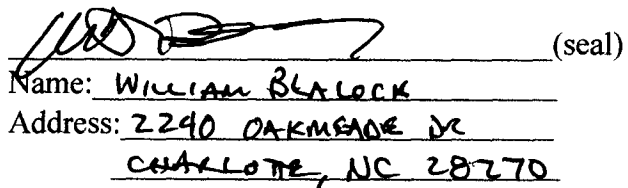 (seal)
Name: WILLIAM BLALOCK
Address: 2240 OAKMEADE DR
CHARLOTTE, NC 28270